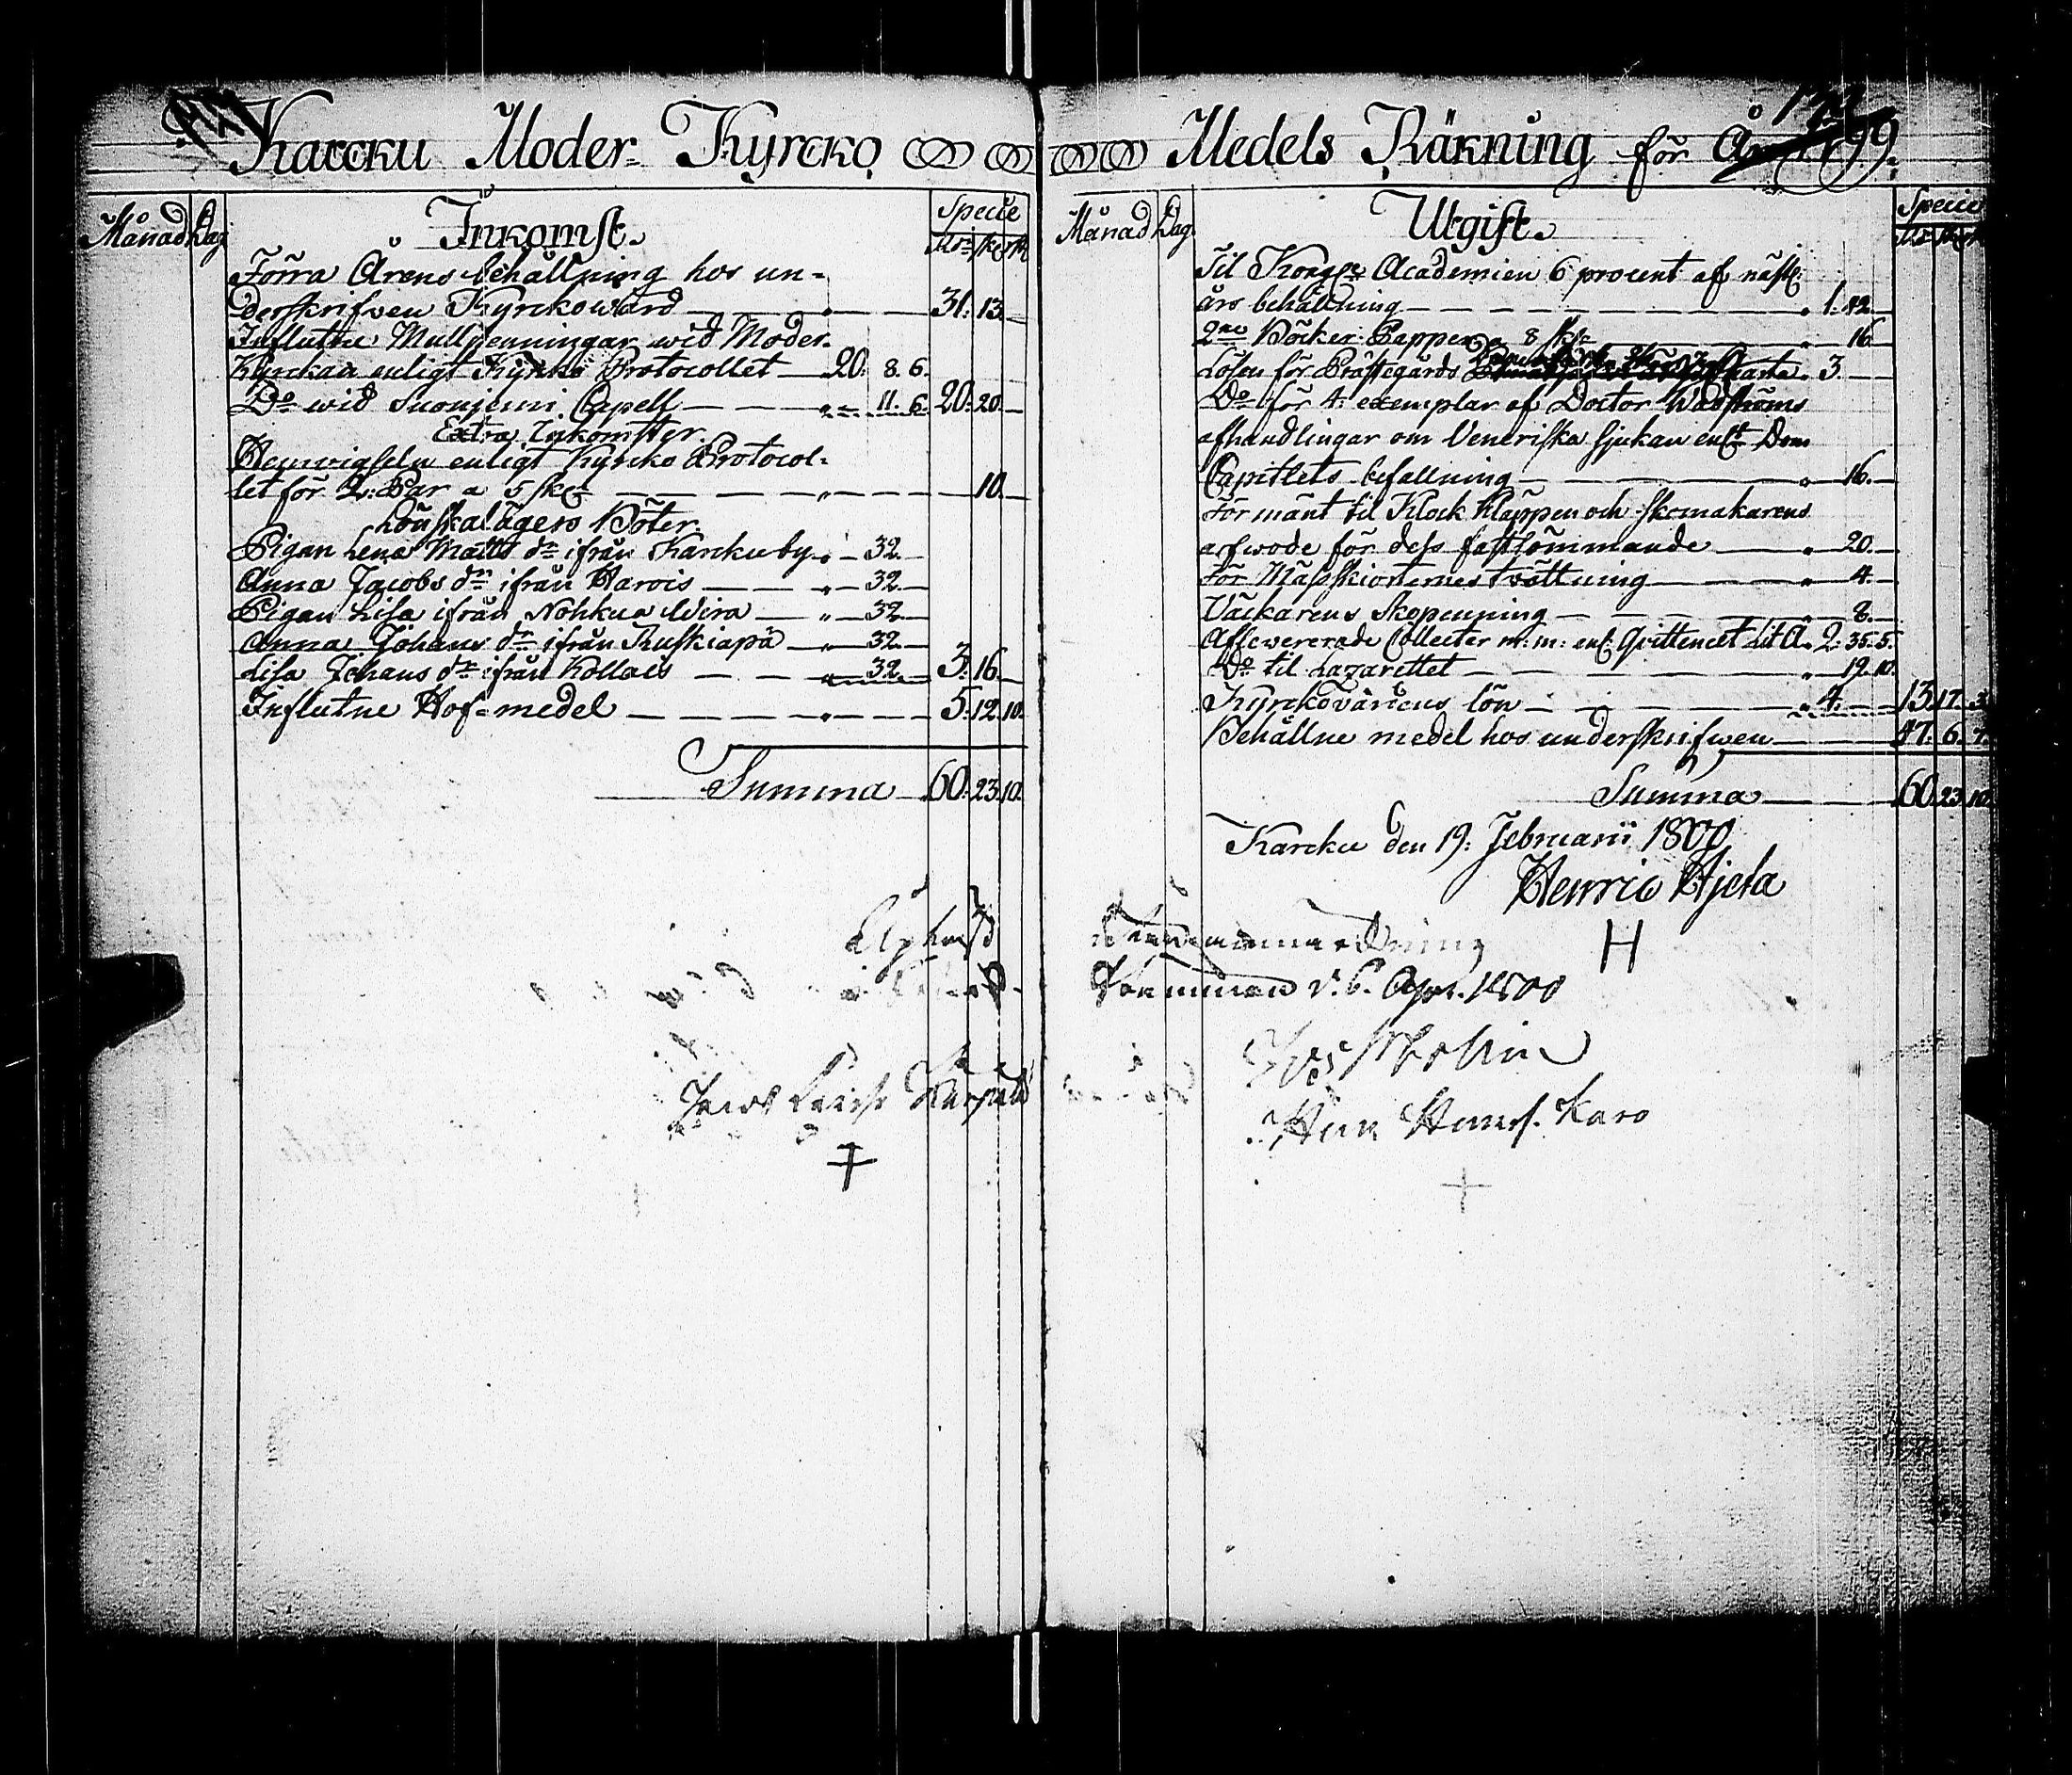 Karcku Moder- Kyrcko
Medels Räkning för År 1799.
Månad Dag Inkomst. Specie
Rdr sk. rst
Förra Årens behållning hos un-
derskrifven Kyrckowärd 31. 13.
Influtne Mullpenningar wid Moder-
Kyrckan enligt Kyrko Protocollet 20. 8. 6.
Do wid Suonjemi Capell 11. 6. 20. 20.
Extra Inkomster.
Hemvigseln enligt Kyrcko Protocol-
let för 2: Par a 5 sk. 10.
Lönskalägers Böter.
Pigan Lena Matts dr ifrån Karckuby 32.
Anna Jacobs dr ifrån Harois 32.
Pigan Lisa ifrån Nohkua Wira 32.
Anna Johans dr ifrån Ruskiapä 32.
Lisa Johans dr ifrån Kollais 32. 3. 16.
Influtne Hof-medel 5. 12. 10.
Summa 60. 23. 10.
Jacob
Månad Dag Utgift. Specie
Til Kongl. Academien 6 procent af nästl.
års behållning 1. 42.
2ne Böcker Papper a 8 sk. 16.
Lösen för Prästegårds Charta 3.
Do för 4: exemplar af Doctor Wadströms
afhandlingar om Veneriska Sjukan enl. Dom
Capitlets befallning 16.
För mänt til Klock Kläppen och skomakarens
arfwode för dess fastsömmande 20.
För Mässskiortornes tvättning 4.
Väckarens Skopenning 8.
Aflewererade Collecter m: m: enl. Qvittencet Lit A. 2. 35. 5.
Do til Lazarettet 19. 10.
Kyrckovärdens lön 4. 13. 17. 3.
Behållne medel hos underskrifwen 47. 6. 7.
Summa 60. 23. 10.
Karcku den 19: Februarii 1800
Henric Hjeta
H
d. 6. Apr. 1800
Henr. Karo